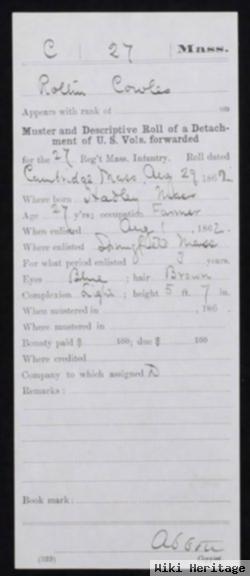 C 27 Mass.
Rollin Cowles
Appears with rank of on
Muster and Descriptive Roll of a Detach-
ment of U. S. Vols. forwarded
for the 27 Reg't Mass. Infantry. Roll dated
Cambridge Mass, Aug 29, 1862
Where born Hadley Mass
Age 27 y'rs; occupation Farmer
When enlisted Aug 1, 1862.
Where enlisted Mass
For what period enlisted 3 years.
Eyes Blue; hair Brown
Complexion Light; height 5 ft. 7 in.
When mustered in , 186 .
Where mustered in
Bounty paid $ 100; due $ 100
Where credited
Company to which assigned D
Remarks:
Book mark:
Abbott
(339) Copyist.
Wiki Heritage